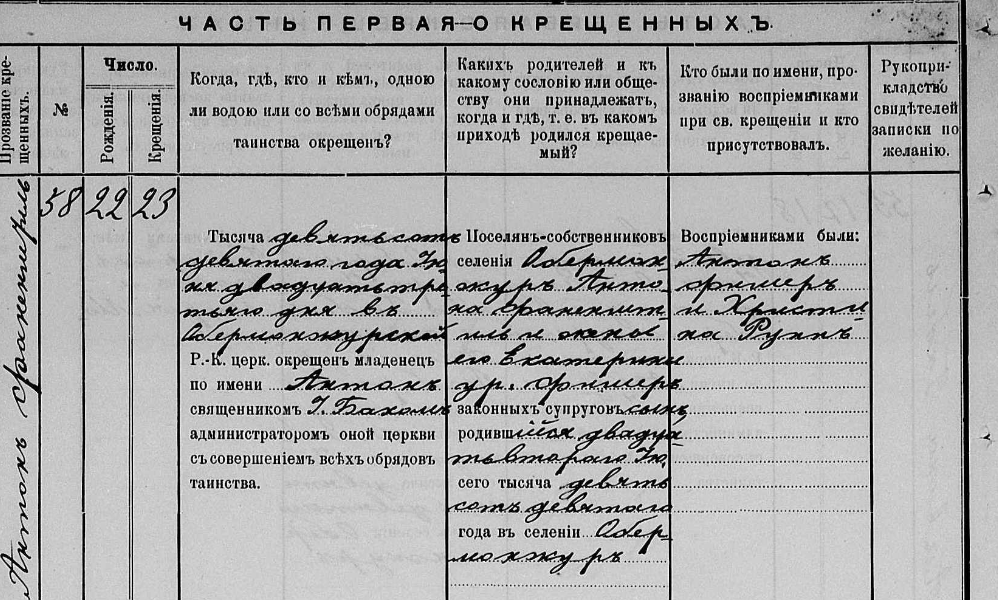 ЧАСТЬ ПЕРВАЯ—О КРЕЩЕННЫХЪ.
Прозваніе кре-
щенныхъ.
№
Число.
Рожденія.
Крещенія.
Когда, гдѣ, кто и кѣмъ, одною
ли водою или со всѣми обрядами
таинства окрещенъ?
Какихъ родителей и къ
какому сословію или обще-
ству они принадлежатъ,
когда и гдѣ, т. е. въ какомъ
приходѣ родился крещае-
мый?
Кто были по имени, про-
званію воспріемниками
при св. крещеніи и кто
присутствовалъ.
Рукопри-
кладство
свидѣтелей
записки по
желанію.
Антонъ
58
22
23
Тысяча девятьсотъ
девятаго года Ію-
ня двадцать тре-
тьяго дня въ
Обермонжурской
Р.-К. церк. окрещенъ младенецъ
по имени Антонъ
священникомъ І. Бахомъ
администраторомъ оной церкви
съ совершеніемъ всѣхъ обрядовъ
таинства.
Поселянъ-собственниковъ
селенія Обермон-
журъ Анто-
на
и жены
его Екатерины
ур. Фишеръ
законныхъ супруговъ сынъ,
родившійся двадца-
ть втораго Ію.
сего тысяча девять
сотъ девятаго
года въ селеніи Обер-
монжуръ
Воспріемниками были:
Антонъ
Фишеръ
и Христи-
на Руппъ